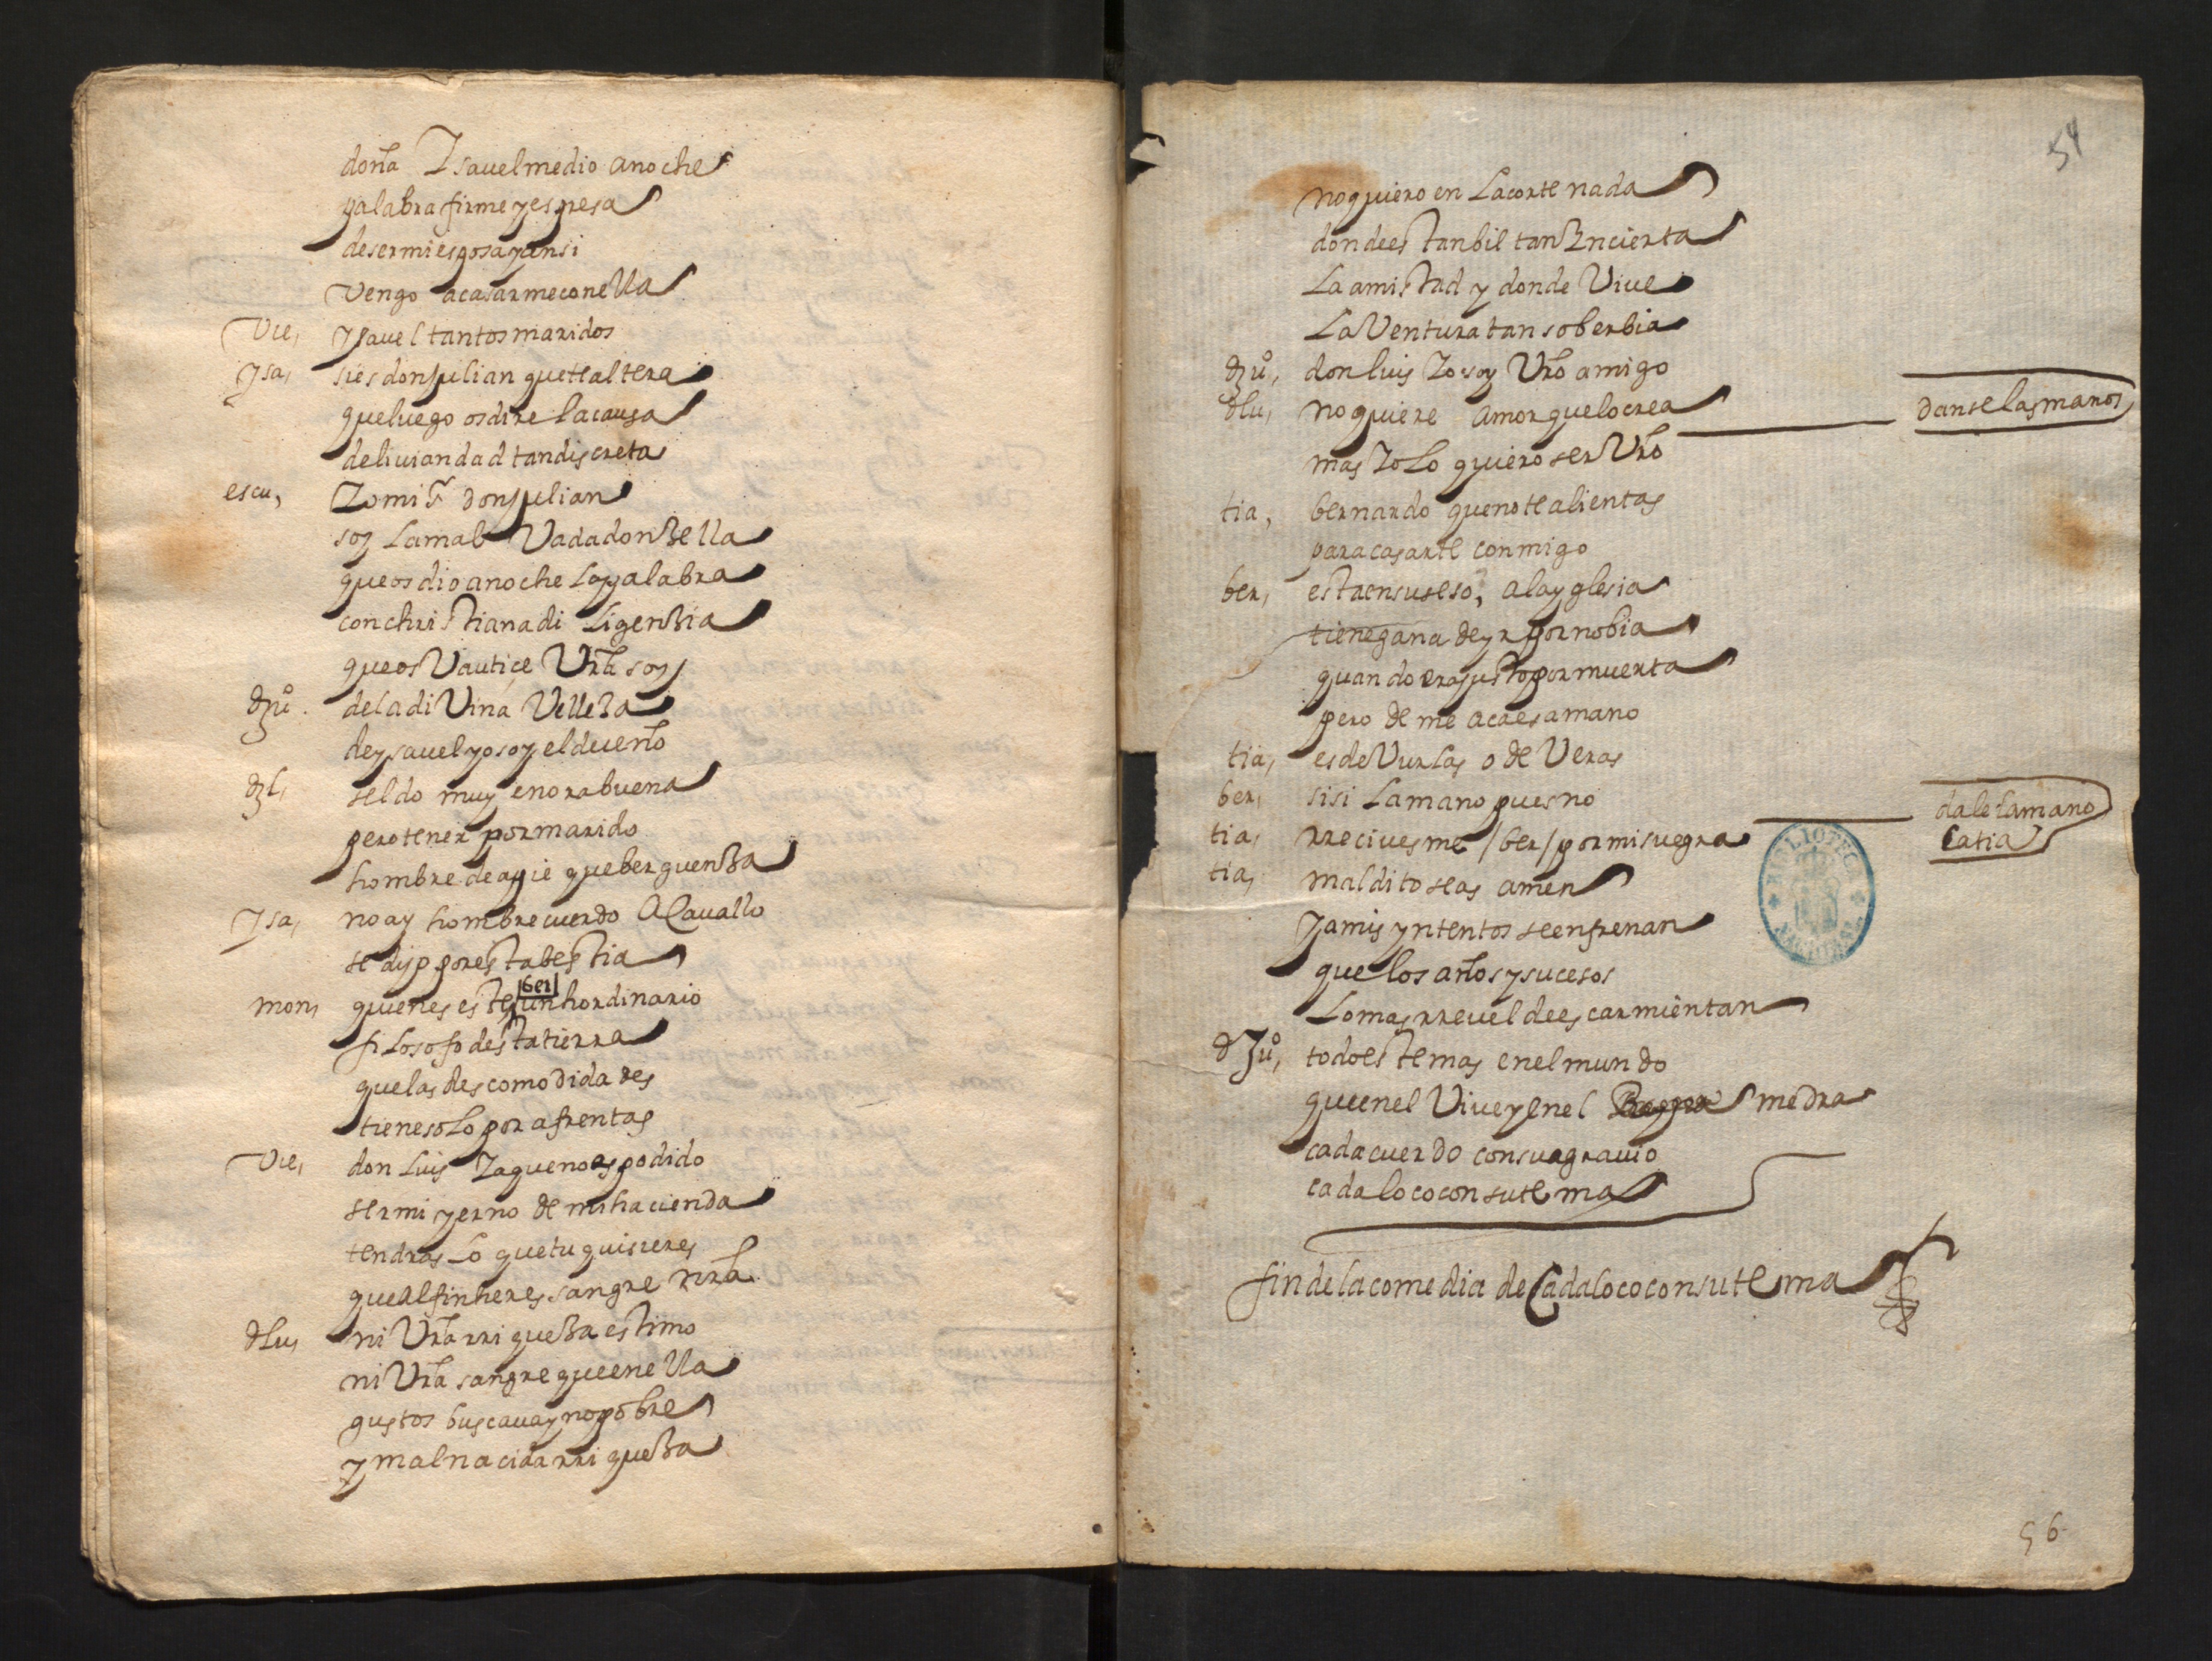 doña Ysavel me dio anoche
palabra firme y espresa
de ser mi esposa y ansi
vengo a casarme con ella
Vie, ysavel tantos maridos
Ysa, si es don julian que te altera
que luego os dire la causa
de liviandad tan discreta
escu, Yo mi sr don julian
soy la malbVada donzella
que os dio anoche la palabra
con christiana diligenzia
que os Vautice Vra soy
d Ju° . de la diVina Velleza
de ysavel yo soy el dueño
d l, seldo muy en ora buena
pero tener por marido
hombre de a pie que berguenza
Ysa, no ay hombre cuerdo a Cavallo
se dijo por esta bestia
mon, quien es este /ber/ un hordinario
filosofo desta tierra
que las descomodidades
tiene solo por afrentas
Vie, don Luis Ya que no as podido
ser mi yerno de mi hacienda
tendras lo que tu quisieres
que al fin heres sangre nra
d lu, ni Vra rriqueza estimo
ni Vra sangre que en ella
gustos buscava y no pobre
y mal nacida rriqueza
54
no quiero en La corte nada
donde es tan bil tan Yncierta
La amistad y donde Vive
La Ventura tan soberbia
d Ju°, don luis Yo soy Vro amigo
d lu, no quiere amor que lo crea
mas Yo Lo quiero ser Vro
danse las manos
tia, bernardo que no te alientas
para casarte conmigo
ber, esta en su seso, a la yglesia
tiene gana de yr por nobia
quando era justo por muerta
pero deme aca esa mano
tia, es de Vurlas o de Veras
ber, si si La mano pues no
tia, rrecivesme /ber/ por mi suegra
dale la mano
la tia
tia, maldito seas amen
Ya mis yntentos se enfrenan
que los años y sucesos
Lo mas rrevelde escarmientan
d Ju°, todo es temas en el mundo
que en el Vive y en el medra
cada cuerdo con su agravio
cada loco con su tema
fin de la comedia de Cada loco con su tema
BIBLIOTECA NACIONAL
56